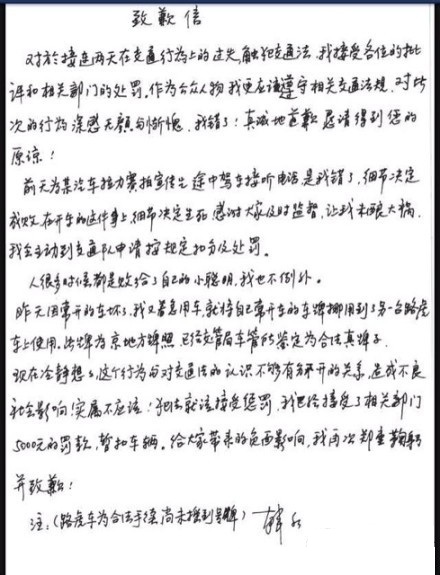 致歉信
对於接连两天在交通行为上的过失,触犯交通法,我接受各位的批
评和相关部门的处罚。作为公众人物我更应该遵守相关交通法规,对此
次的行为深感无颜与惭愧,我错了!真诚地道歉恳请得到您的
原谅!
前天为某汽车拉力赛拍宣传片途中驾车接听电话是我错了,细节决定
成败,在开车的这件事上,细节决定生死,感谢大家及时监督,让我未酿大祸,
我会主动到交通队申请按规定扣分及处罚。
人很多时候都是败给了自己的小聪明,我也不例外。
昨天因常开的车坏了,我又着急用车,就将自己常开车的车牌挪用到了另一台路虎
车上使用。此牌为京地方牌照,已经交管局车管所鉴定为合法真牌子。
现在冷静想想,这个行为与对交通法的认识不够有分不开的关系,造成不良
社会影响!实属不应该!犯法就该接受惩罚,我已经接受了相关部门
5000元的罚款,暂扣车辆。给大家带来的负面影响,我再次郑重鞠躬
并致歉!
注:(路虎车为合法手续,尚未接到号牌)